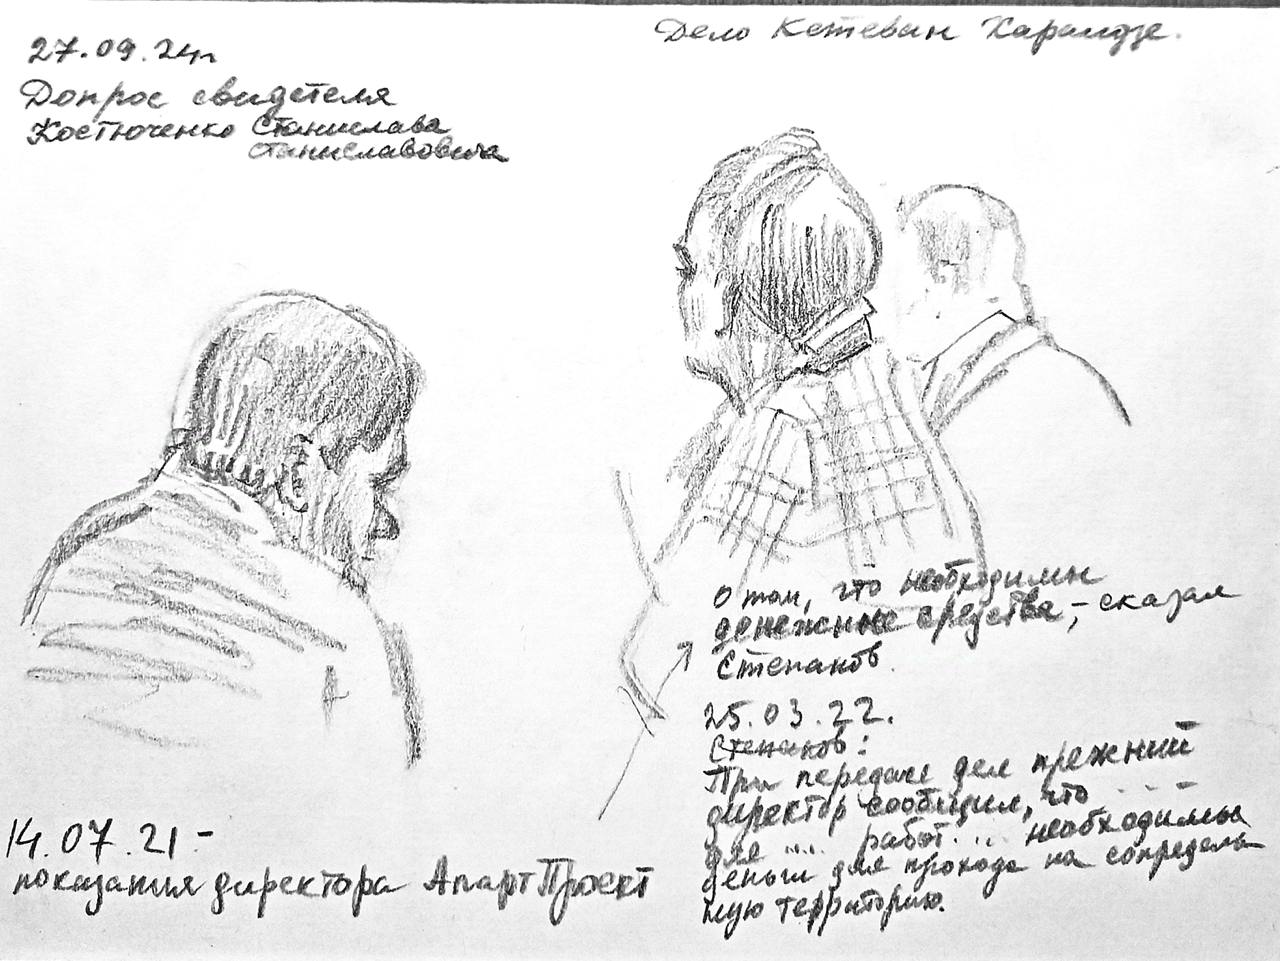 27.09.24г
Допрос свидетеля
Костюченко Станислава
Станиславовича
Дело Кетеван Хараидзе.
О том, что необходимы
денежные средства, – сказал
Степанов.
25.03.22.
Степанов:
При передаче дел прежний
директор сообщил, что ... -
для .... работ ... необходимы
деньги для прохода на сопредель-
ную территорию.
14.07.21 –
показания директора АпартПроект